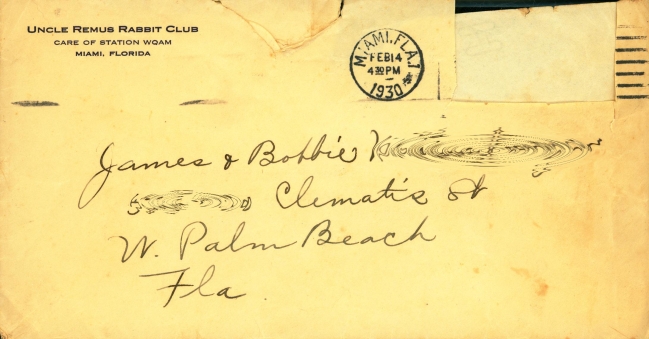 UNCLE REMUS RABBIT CLUB
CARE OF STATION WQAM
MIAMI, FLORIDA
MIAMI, FLA. 1
FEB 14
4 30 PM
1930
James & Bobbie
Clematis St
W. Palm Beach
Fla